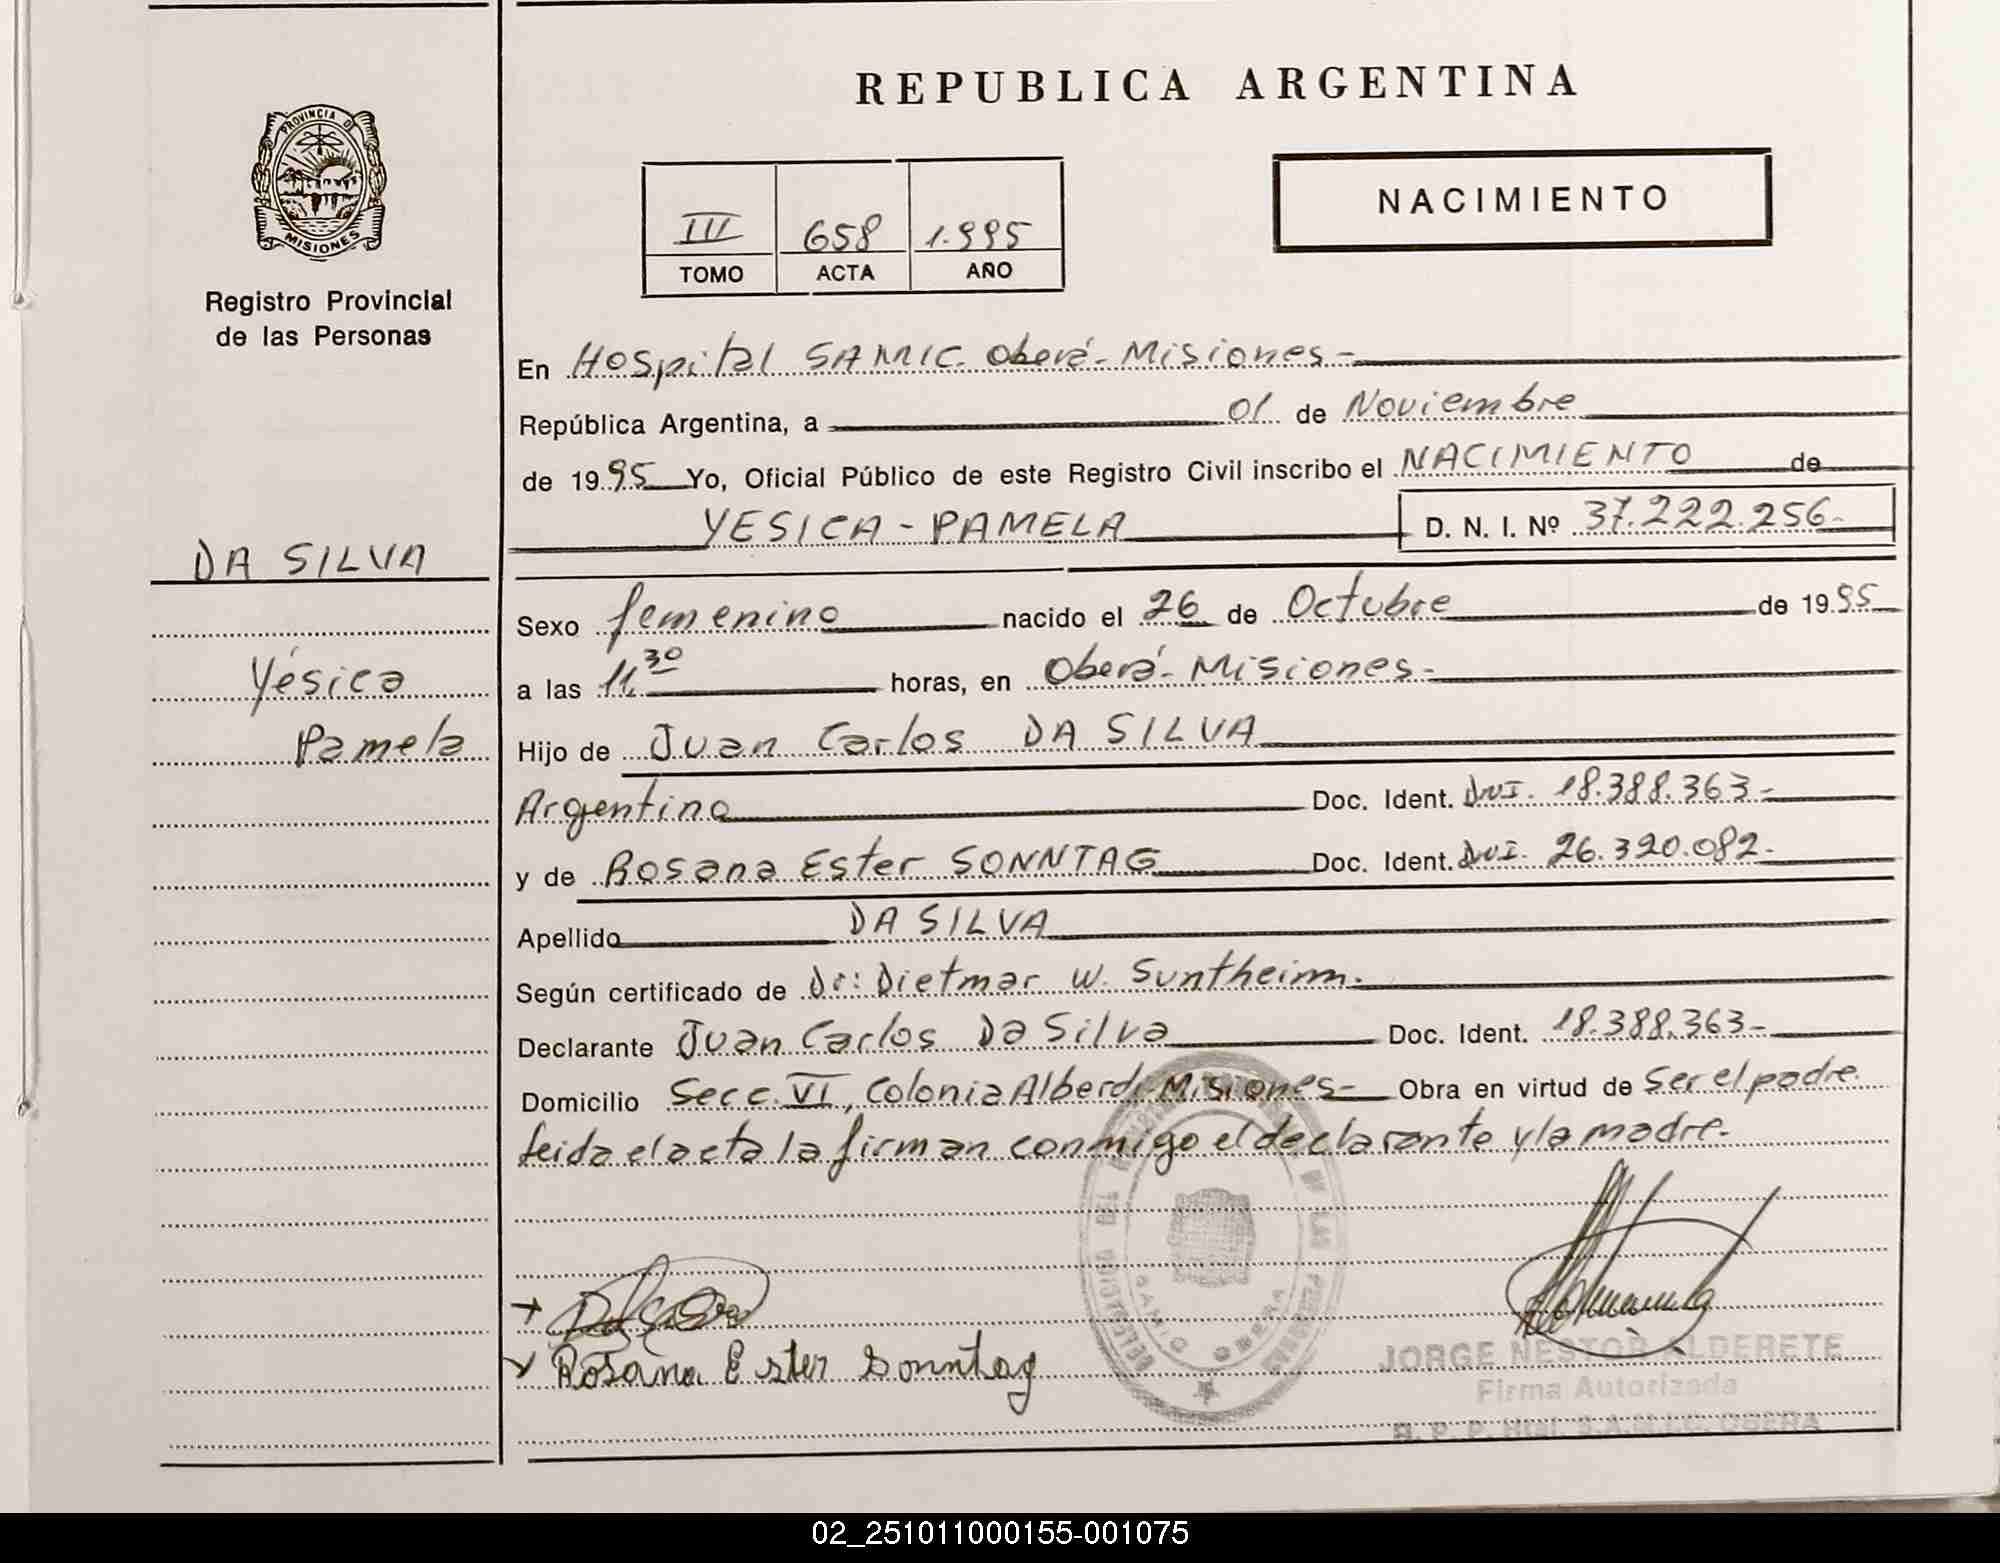 REPUBLICA ARGENTINA
PROVINCIA DE
MISIONES
Registro Provincial
de las Personas
NACIMIENTO
III 658 1.995
TOMO ACTA AÑO
En Hospital SAMIC. Oberá-Misiones.-
República Argentina, a 01 de Noviembre
de 1995 Yo, Oficial Público de este Registro Civil inscribo el NACIMIENTO de
YESICA-PAMELA D. N. I. Nº 37.222.256-
DA SILVA
Yésica
Pamela
Sexo femenino nacido el 26 de Octubre de 1995
a las 11.30 horas, en Oberá-Misiones-
Hijo de Juan Carlos DA SILVA
Argentino Doc. Ident. DNI. 18.388.363-
y de Rosana Ester SONNTAG Doc. Ident. DNI. 26.320.082-
Apellido DA SILVA
Según certificado de Dr: Dietmar W. Suntheim.
Declarante Juan Carlos Da Silva Doc. Ident. 18.388.363-
Domicilio Secc. VI, Colonia Alberdi-Misiones- Obra en virtud de Ser el padre
leida el acta la firman conmigo el declarante y la madre-
Rosana Ester Sonntag
OBERA
JORGE NESTOR ALDERETE
Firma Autorizada
R. P. P. Htal. S.A.M.I.C. OBERA
02_251011000155-001075